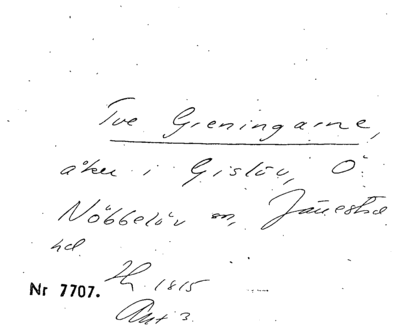 Tve Greningarne,
åker i Gislöv, Ö
Nöbbelöv sn, Järrestad
hd
Lh 1815
Akt 3.
Nr 7707.